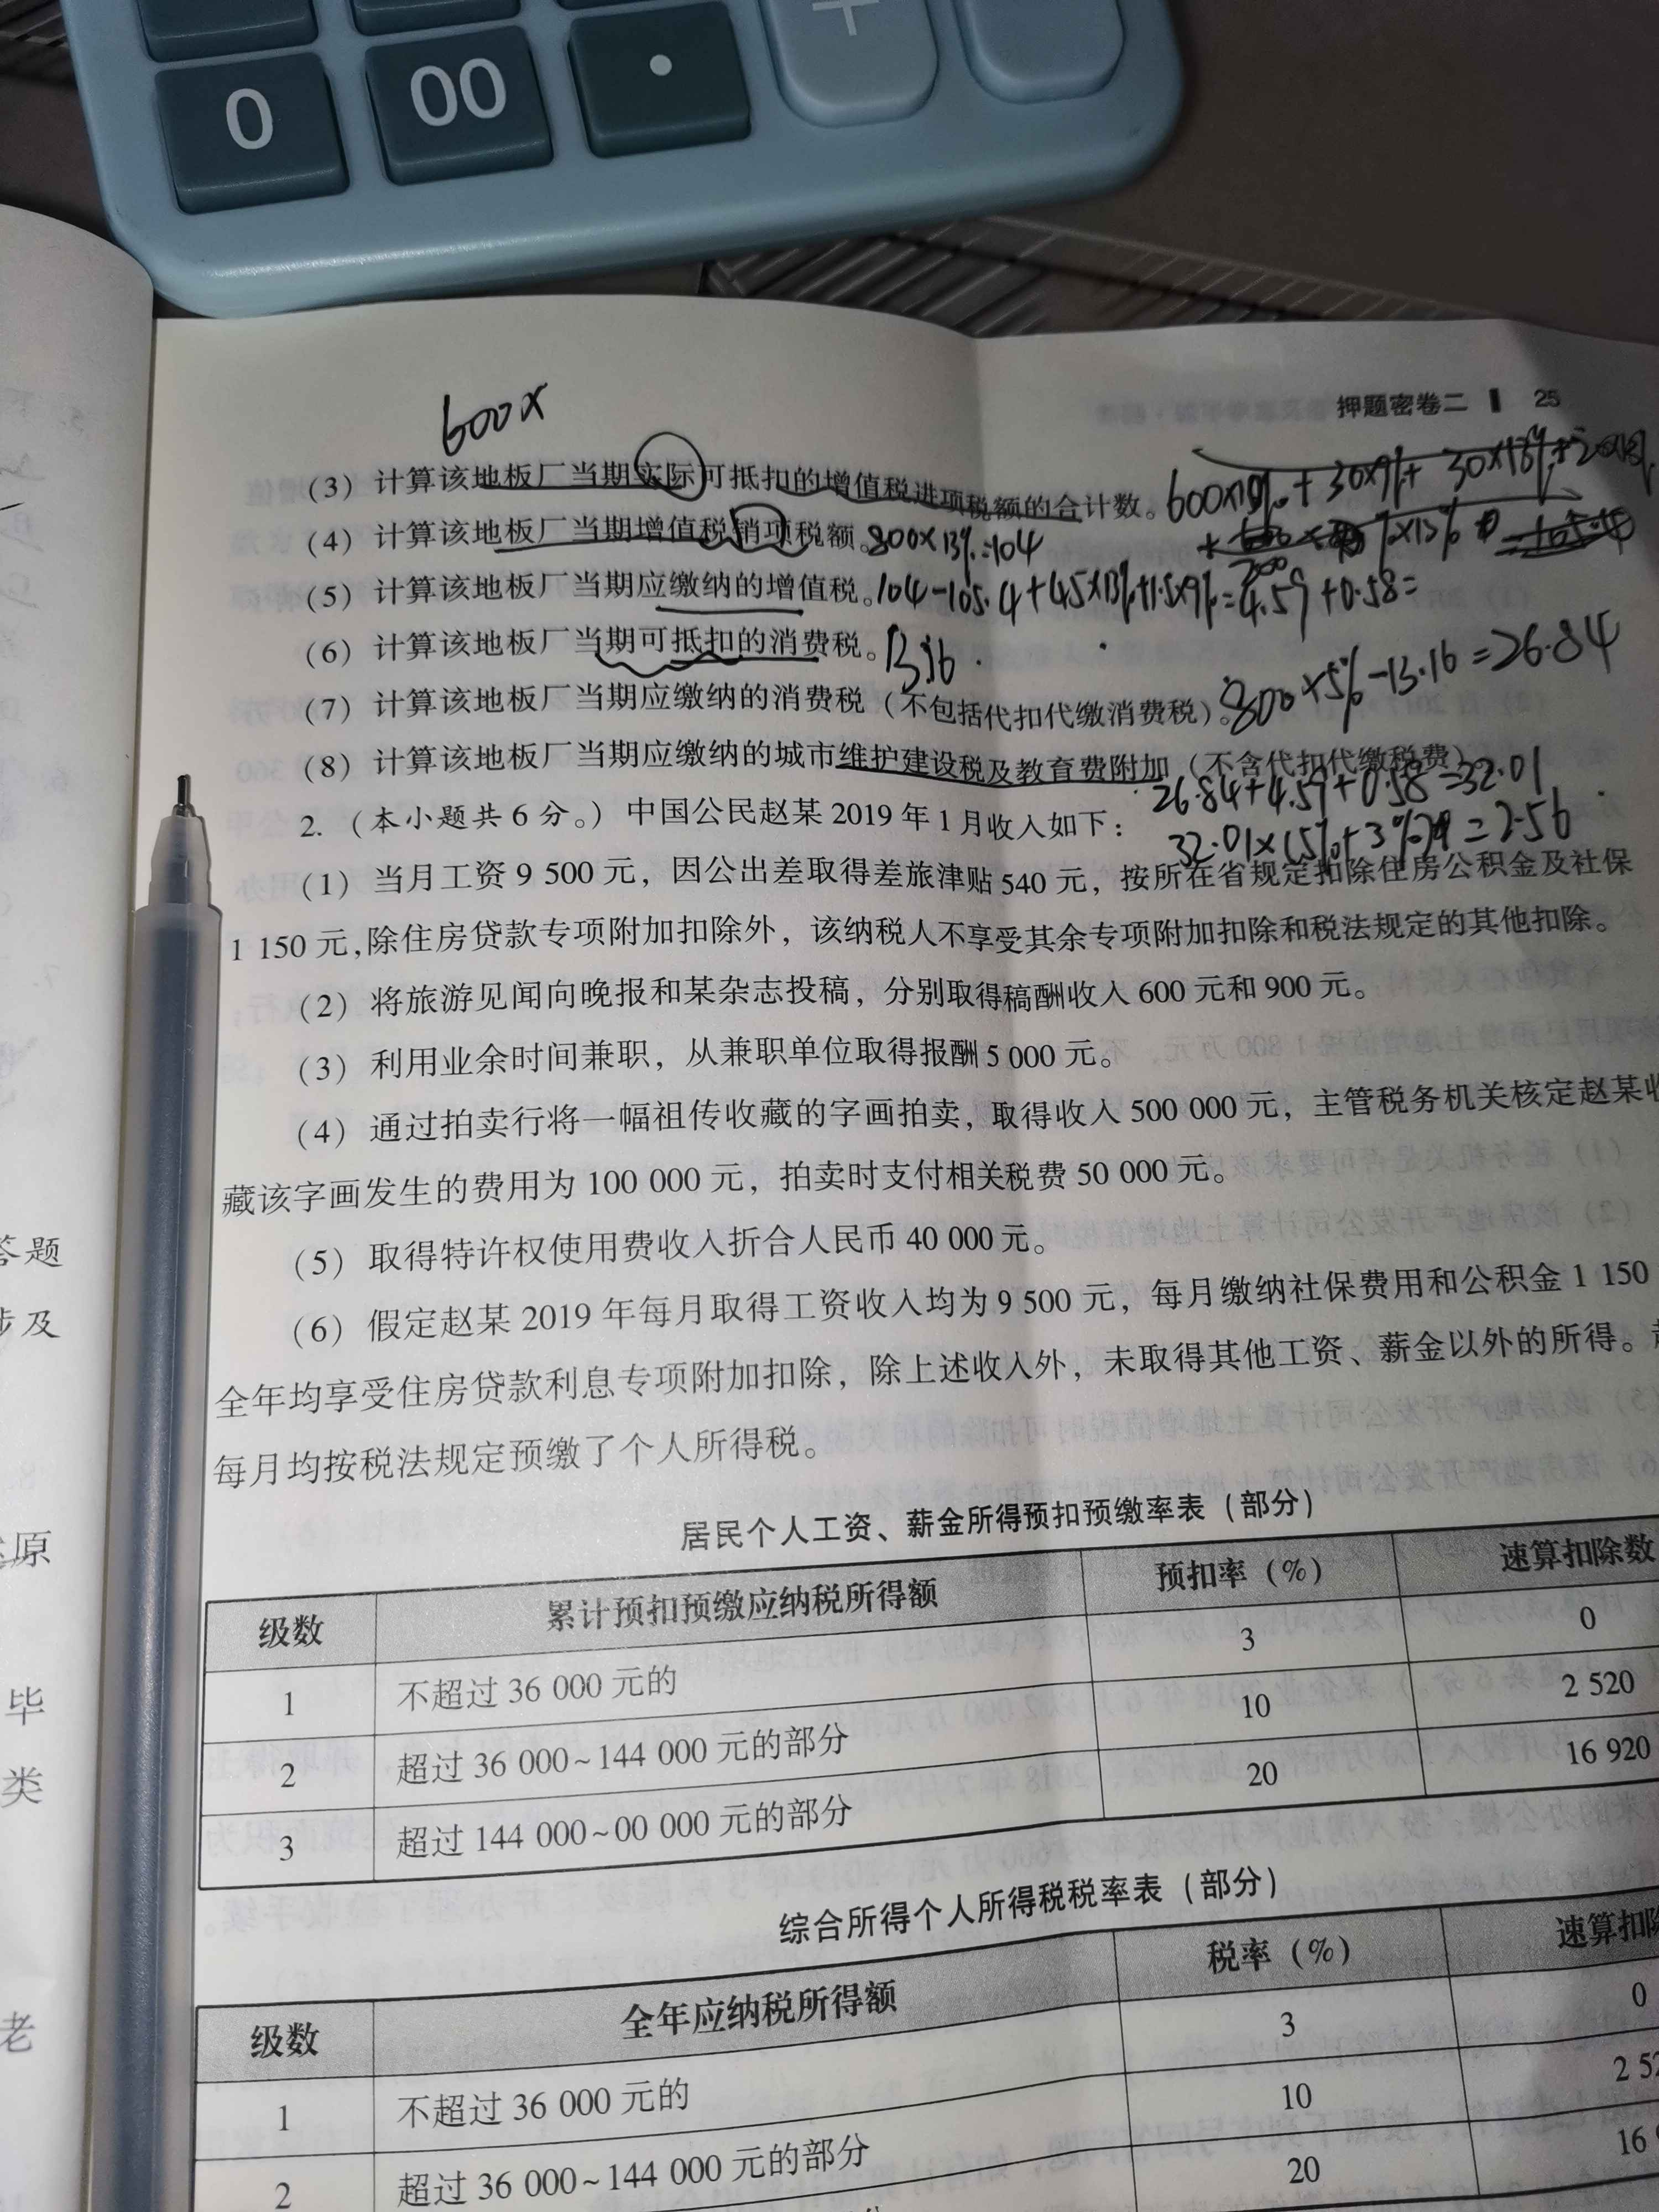 0
00
600×
押题密卷二 25
(3) 计算该地板厂当期实际可抵扣的增值税进项税额的合计数。
(4) 计算该地板厂当期增值税销项税额。800×13%=104
(5) 计算该地板厂当期应缴纳的增值税。104-105.4+45×13%+1.5×9%=4.59+0.58=
(6) 计算该地板厂当期可抵扣的消费税。13.16
(7) 计算该地板厂当期应缴纳的消费税（不包括代扣代缴消费税）。800×5%-13.16=26.84
(8) 计算该地板厂当期应缴纳的城市维护建设税及教育费附加（不含代扣代缴税费）
26.84+4.59+0.58=32.01
2. （本小题共6分。）中国公民赵某2019年1月收入如下：
(1) 当月工资9 500元，因公出差取得差旅津贴540元，按所在省规定扣除住房公积金及社保
1 150元,除住房贷款专项附加扣除外，该纳税人不享受其余专项附加扣除和税法规定的其他扣除。
(2) 将旅游见闻向晚报和某杂志投稿，分别取得稿酬收入600元和900元。
(3) 利用业余时间兼职，从兼职单位取得报酬5 000元。
(4) 通过拍卖行将一幅祖传收藏的字画拍卖，取得收入500 000元，主管税务机关核定赵某收
藏该字画发生的费用为100 000元，拍卖时支付相关税费50 000元。
(5) 取得特许权使用费收入折合人民币40 000元。
(6) 假定赵某2019年每月取得工资收入均为9 500元，每月缴纳社保费用和公积金1 150
全年均享受住房贷款利息专项附加扣除，除上述收入外，未取得其他工资、薪金以外的所得。
每月均按税法规定预缴了个人所得税。
居民个人工资、薪金所得预扣预缴率表（部分）
级数 累计预扣预缴应纳税所得额 预扣率（%） 速算扣除数
1 不超过36 000元的 3 0
2 超过36 000~144 000元的部分 10 2 520
3 超过144 000~00 000元的部分 20 16 920
综合所得个人所得税税率表（部分）
级数 全年应纳税所得额 税率（%） 速算扣除
1 不超过36 000元的 3 0
2 超过36 000~144 000元的部分 10 2 52
20 16
答题
涉及
原
毕
类
老